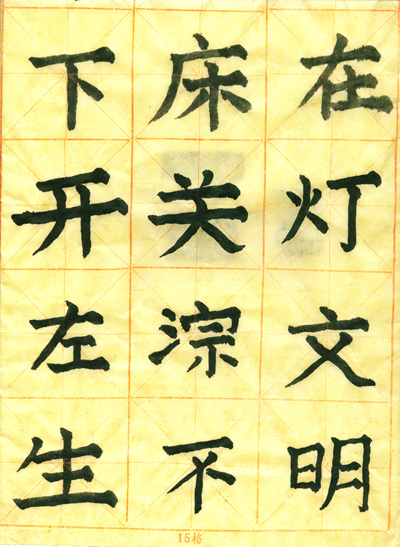 在灯文明
床关淙不
下开左生
15格